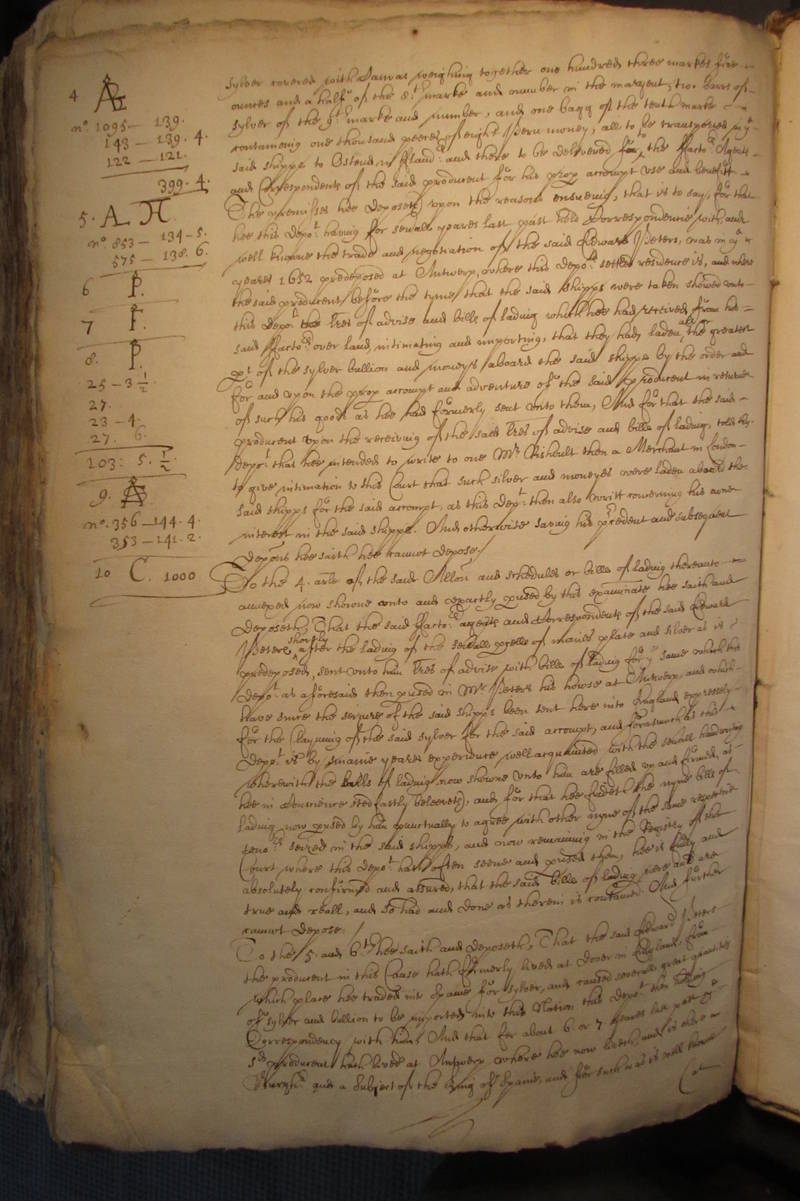 4 AG
no. 1095 — 139.
143 — 139. 4.
122 — 121.
399. 4.
5. A H.
no. 853 — 134 - 5.
575 — 138. 6.
6 P.
7 F.
8. P.
25 - 3 1/2
27.
23 - 4.
27. 6.
103: 5. 1/2.
9. AS
no. 356 — 144. 4.
353 — 141. 2.
10 C. 1000
sylver covered with Canvas weighing together one hundred three markes five
ounces and a halfe of the 8th marke and number in the margent, two barrs of
sylver of the 9th marke and number, and one bagg of the tenth marke
containeing one thousand peeces of eight Peru money, all to be transported in ye
said shipps to Ostend in Flandrs and there to be delivered for the Factors Agents
and Correspondents of the said producent for his prop accompt use and benefitt
The premisses hee deposeth upon the reasons ensueing, that is to say, for that
hee this Depot having for severall yeares last past held Correspondence with, and
well knowne the trade and negotiation of the said Edward Peters, was in ye
yeare 1652 predeposed at Antwerp, where this Depots setled residence is, and where
the said producent before the tyme that the said shipps were taken showed unto
this Depot the lres of advise and bills of lading which hee had received from his
said Factors over land, intimating and importing, that they had laden all or the greatest
pt of the sylver bullion and moneys aboard the said shipps by the order and
for and upon the prop accompt and adventure of the said producent in returne
of such his goods as hee had formerly sent unto them, And for that the said
producent upon the receiving of the said lres of advise and bills of lading, told this
depot that hee intended to write to one Mr Richault then a Merchant in London
to give intimation to this Court that such silver and moneyes were laden aboard the
said shipps for the said accompt, as this Depot then also writt concerning his owne
interest in the said shipps. And otherwise saving his precedent and subsequent
Depons hee saith hee cannot depose/
To the 4. arle of the said Allon and schedules or bills of lading thereunto
annexed now showne unto and exactly prused by this examinate hee saith and
deposeth, That the said Factors agents and Correspondents of the said Edward
Peters shortly after the lading of the severall pcells of monies plate and silver as is
predeposed, sent unto him lres of advise with bills of lading for ye same which this
Depot as aforesaid then prused in Mr Peters his howse at Antwerp, and which
have since the seizure of the said shipps been sent here into England expressely
for the clayming of the said sylver for the said accompt, and forasmuch as this
Depot is by manie yeares experience well acquainted with the severall handwryting
wherewith the bills of lading now showne unto him are filled up and firmed, as
hee in Conscience stedfastly beleeves, and for that hee findeth the nyne bills of
lading now prused by him punctually to agree with other nyne of the same respective
tenor seized in the said shipps, and now remaining in the Registry of this
Court where this Depot hath often seene and prused them, hee is fully and
absolutely confirmed and assured, that the said bills of lading were and are
true and reall, and so had and done as therein is contained. And further
cannot depose./
To the 5. and 6th hee saith and deposeth, That the said Edward Peters
the producent in this Cause hath formerly lived at Dover in England, from
which place hee traded into Spaine for sylver, and caused severall great quantities
of sylver and bullion to be imported into this Nation this Depot then holding
Correspondency with him, And that for about 6 or 7 yeares last past ye
sd producent hath lived at Antwerp where hee now liveth, and is there a
Burgher and a Subject of the King of Spaine, and for such was is well knowne
(at